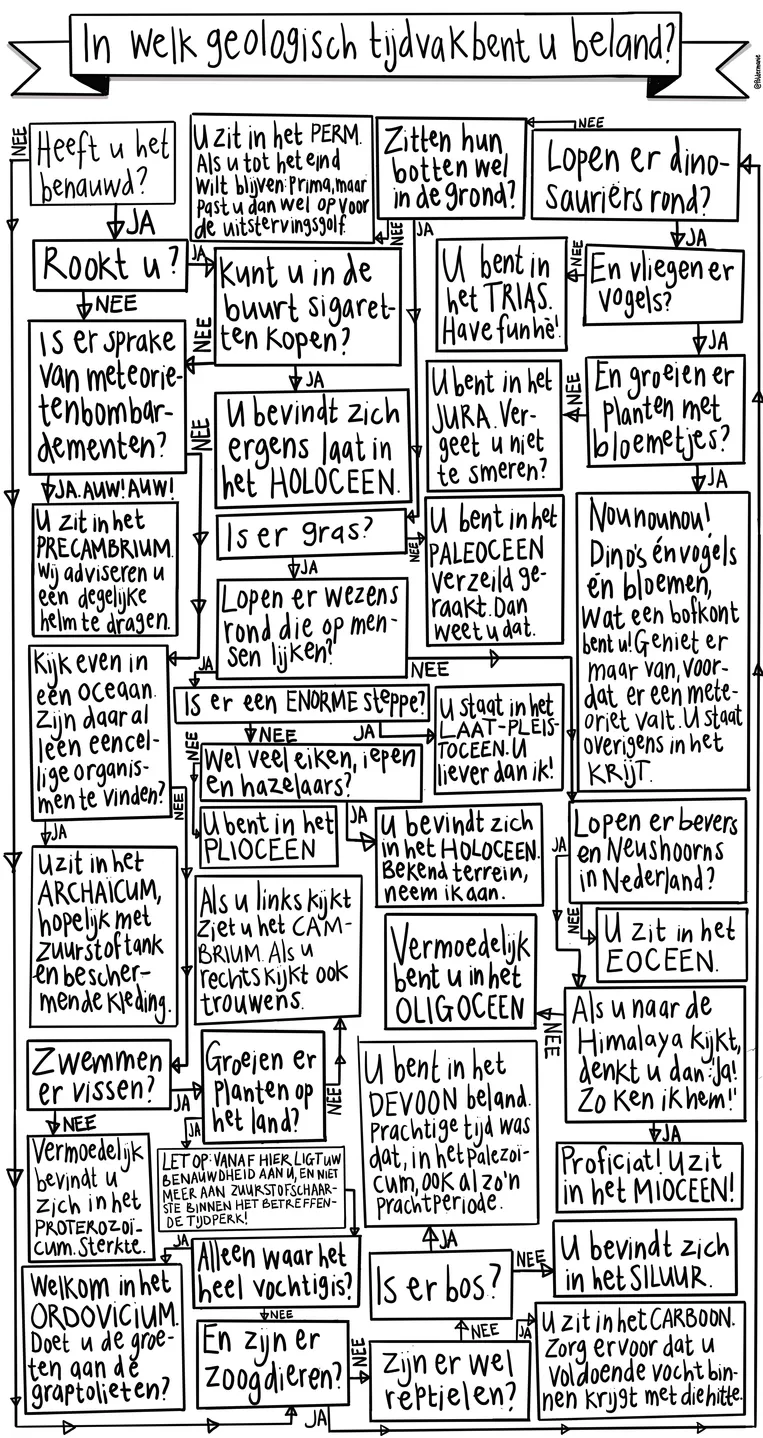 In welk geologisch tijdvak bent u beland?
@flodermans
NEE
Heeft u het
benauwd?
JA
U zit in het PERM.
Als u tot het eind
wilt blijven: Prima, maar
past u dan wel op voor
de uitstervingsgolf.
NEE
Zitten hun
botten wel
in de grond?
JA
NEE
Lopen er dino-
sauriërs rond?
JA
Rookt u?
JA
NEE
Kunt u in de
buurt sigaret-
ten kopen?
NEE
JA
U bent in
het TRIAS.
Have fun hè!
NEE
En vliegen er
vogels?
JA
Is er sprake
van meteorie-
tenbombar-
dementen?
NEE
JA. AUW! AUW!
U bevindt zich
ergens laat in
het HOLOCEEN.
U bent in het
JURA. Ver-
geet u niet
te smeren?
NEE
En groeien er
planten met
bloemetjes?
JA
U zit in het
PRECAMBRIUM.
Wij adviseren u
een degelijke
helm te dragen.
Is er gras?
NEE
JA
U bent in het
PALEOCEEN
verzeild ge-
raakt. Dan
weet u dat.
Nounounou!
Dino's én vogels
én bloemen,
wat een bofkont
bent u! Geniet er
maar van, voor-
dat er een mete-
oriet valt. U staat
overigens in het
KRIJT.
Lopen er wezens
rond die op men-
sen lijken?
JA
NEE
Kijk even in
een oceaan.
Zijn daar al
leen eencel-
lige organis-
men te vinden?
NEE
JA
Is er een ENORME steppe?
NEE
NEE
JA
U staat in het
LAAT-PLEIS-
TOCEEN. U
liever dan ik!
Wel veel eiken, iepen
en hazelaars?
JA
U bent in het
PLIOCEEN
U bevindt zich
in het HOLOCEEN.
Bekend terrein,
neem ik aan.
JA
Lopen er bevers
en Neushoorns
in Nederland?
NEE
U zit in het
EOCEEN.
U zit in het
ARCHAICUM,
hopelijk met
zuurstoftank
en bescher-
mende kleding.
Als u links kijkt
ziet u het CAM-
BRIUM. Als u
rechts kijkt ook
trouwens.
Vermoedelijk
bent u in het
OLIGOCEEN
NEE
Als u naar de
Himalaya kijkt,
denkt u dan: "Ja!
Zo ken ik hem!"
JA
Zwemmen
er vissen?
JA
NEE
Groeien er
planten op
het land?
NEE
JA
U bent in het
DEVOON beland.
Prachtige tijd was
dat, in het Palezoï-
cum, OOK al zo'n
prachtperiode.
Proficiat! U zit
in het MIOCEEN!
Vermoedelijk
bevindt u
zich in het
PROTEROZOÏ-
cum. Sterkte.
LET OP: VANAF HIER LIGT UW
BENAUWDHEID AAN U, EN NIET
MEER AAN ZUURSTOFSCHAAR-
STE BINNEN HET BETREFFEN-
DE TIJDPERK!
JA
Alleen waar het
heel vochtig is?
NEE
JA
Is er bos?
NEE
U bevindt zich
in het SILUUR.
Welkom in het
ORDOVICIUM.
Doet u de groe-
ten aan de
graptolieten?
En zijn er
zoogdieren?
NEE
JA
NEE
Zijn er wel
reptielen?
JA
U zit in het CARBOON.
Zorg ervoor dat u
voldoende vocht bin-
nen krijgt met die hitte.